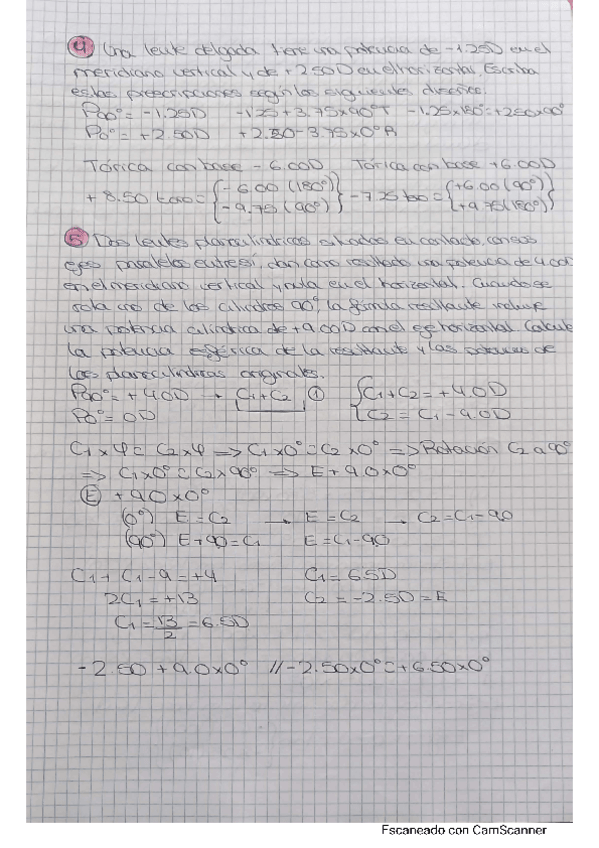 ④ Una lente delgada tiene una potencia de -1.25D en el
meridiano vertical y de +2.50D en el horizontal. Escriba
estas prescripciones según los siguientes
P90° = -1.25D -1.25+3.75×90°T -1.25×180° = +2.50×90°
P0° = +2.50D +2.50-3.75×0°R
Tórica con base -6.00D Tórica con base +6.00D
+8.50 = {-6.00 (180°) -7.25 = {+6.00 (90°)
-9.75 (90°)} +9.75 (180°)}
⑤ Dos lentes planocilíndricas situadas en contacto, con sus
ejes paralelos entre sí, dan como resultado una potencia de 4.00D
en el meridiano vertical y nula en el horizontal. Cuando se
rota uno de los cilindros 90°, la fórmula resultante incluye
una potencia cilíndrica de +9.00D con el eje horizontal. Calcule
la potencia esférica de la resultante y las potencias de
las planocilíndricas originales.
P90° = +4.0D → C1+C2 ① {C1+C2 = +4.0D
P0° = 0D {C2 = C1-9.0D
C1×φ = C2×φ => C1×0° = C2×0° => Rotación C2 a 90°
=> C1×0° = C2×90° => E+9.0×0°
Ⓔ +9.0×0°
(0°) E = C2 → E = C2 → C2 = C1-9.0
(90°) E+9.0 = C1 E = C1-9.0
C1+C1-9 = +4 C1 = 6.5D
2C1 = +13 C2 = -2.5D = E
C1 = 13/2 = 6.5D
-2.50+9.0×0° // -2.50×0° = +6.50×0°
Escaneado con CamScanner